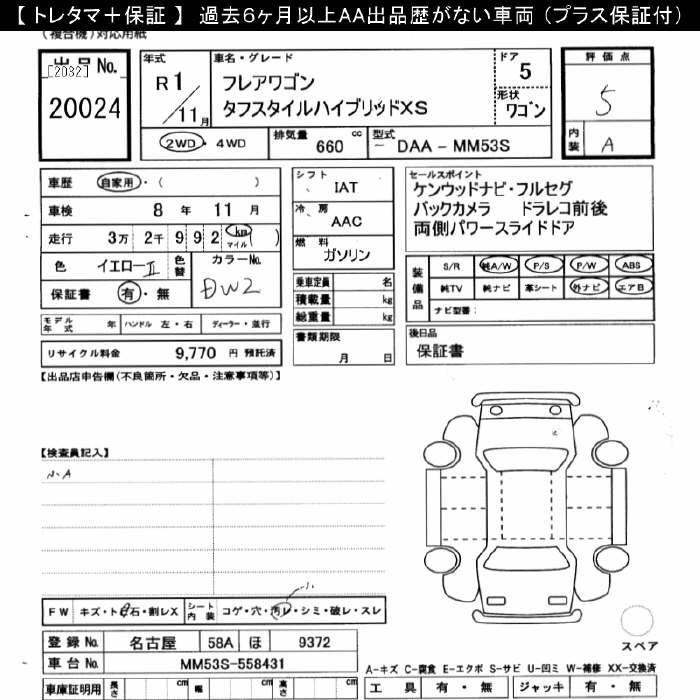 【 トレタマ＋保証 】 過去６ヶ月以上ＡＡ出品歴がない車両（プラス保証付）
(複合機)対応用紙
出品No.
[2032]
20024
年式
R 1
11月
車名・グレード
フレアワゴン
タフスタイルハイブリッドXS
ドア
5
形状
ワゴン
2WD・4WD
排気量
660 cc
型式
DAA － MM53S
評価点
5
内装
A
車歴 自家用・( )
車検 8 年 11 月
走行 3万 2千 9 9 2 km マイル ( )
色 イエローII
色替
カラーNo.
DW2
保証書 有・無
シフト
IAT
冷房
AAC
燃料
ガソリン
乗車定員 名
積載量 kg
総重量 kg
書類期限
月 日
セールスポイント
ケンウッドナビ・フルセグ
バックカメラ ドラレコ前後
両側パワースライドドア
装備品
S/R 純A/W P/S P/W ABS
純TV 純ナビ 革シート 外ナビ エアB
ナビ型番:
後日品
保証書
モデル年式 年 ハンドル 左・右 ディーラー・並行
リサイクル料金 9,770 円 預託済
【出品店申告欄(不良箇所・欠品・注意事項等)】
【検査員記入】
N-A
FW キズ・ト石・割レX シート内装 コゲ・穴・汚レ・シミ・破レ・スレ
登録 No. 名古屋 58A ほ 9372
車台 No. MM53S-558431
車庫証明用 長さ cm 幅 cm 高さ cm
スペア
A-キズ C-腐食 E-エクボ S-サビ U-凹ミ W-補修 XX-交換済
工具 有・無 ジャッキ 有・無